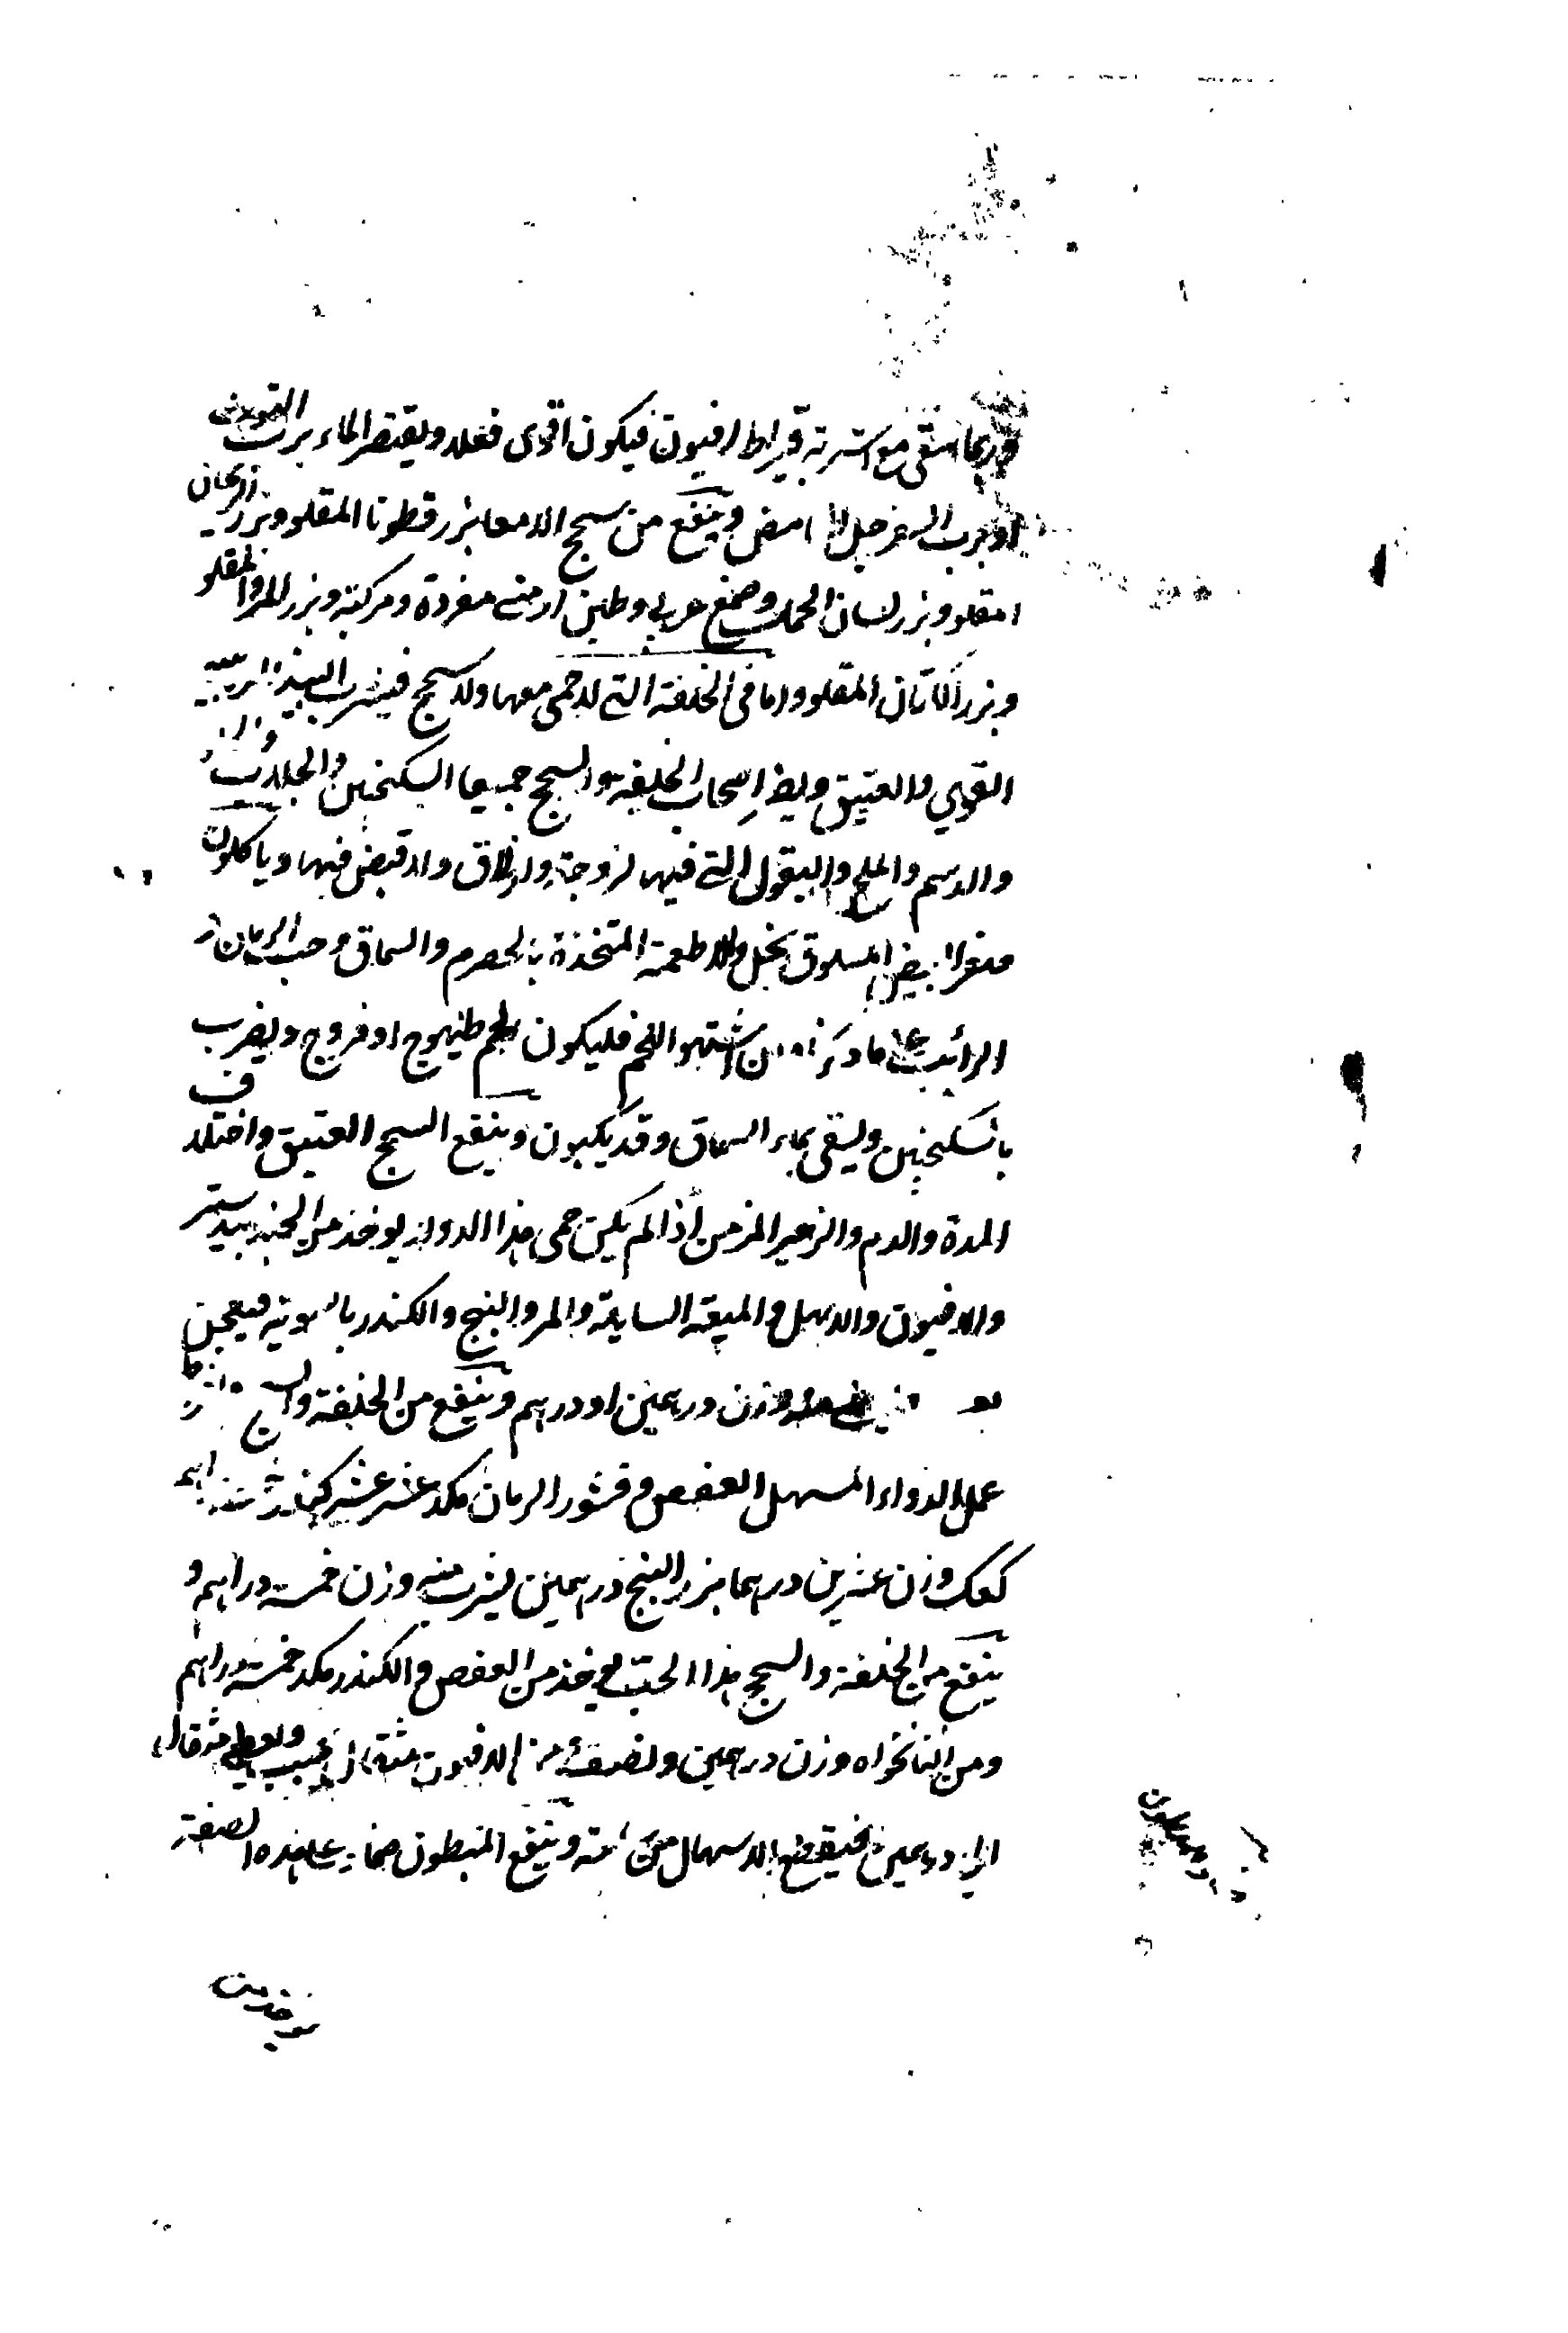 وربما سقى مع شربة قيراط افيون فيكون اقوى فعلا ويقتصر الماء برب
او برب السفرجل الحامض وينفع من سحج الامعا بزر قطونا المقلو وبزر الريحان
المقلو وبزر لسان الحمل وصمغ عربي وطين ارمني مفردة ومركبة وبزر المرو المقلو
وبزر الكتان المقلو واما في الخلفة التي لا حمى معها ولا سحج فيشرب النبيذ
القوي والعتيق وليحذر اصحاب الخلفة والسحج جميعا السكنجبين والجلاب
والدسم والملح والبقول التي فيها لزوجة وازلاق ولا قبض فيها وياكلون
صفرة البيض المسلوق بخل والاطعمة المتخذة بالحصرم والسماق وحب الرمان
الرائب على ما ذكرنا ومن اشتهى اللحم فليكون لحم طيهوج او فروج ويضرب
بالسكنجبين ويسقى بماء السماق وقد يكببون وينفع السحج العتيق واختلاف
المدة والدم والزحير المزمن اذا لم يكن حمى هذا الدواء يوخذ من الجندبيدستر
والافيون والابهل والميعة السايلة والمر والبنج والكندر بالسوية فيعجن
وزن درهمين او درهم وينفع من الخلفة والسحج
عمل الدواء المسهل العفص وقشور الرمان مكد عشر عشر كندر
كعك وزن عشرين درهما بزر البنج درهمين يشرب منه وزن خمسة دراهم و
ينفع من الخلفة والسحج هذا الحب يوخذ من العفص والكندر مكد خمسة دراهم
ومن النانخواه وزن درهمين ونصف ومن الافيون مثقال يحبب ويعطى مثقال
الى درهمين فيقطع الاسهال من ساعته وينفع المبطون ضماد على هذه الصفة
يوخذ من